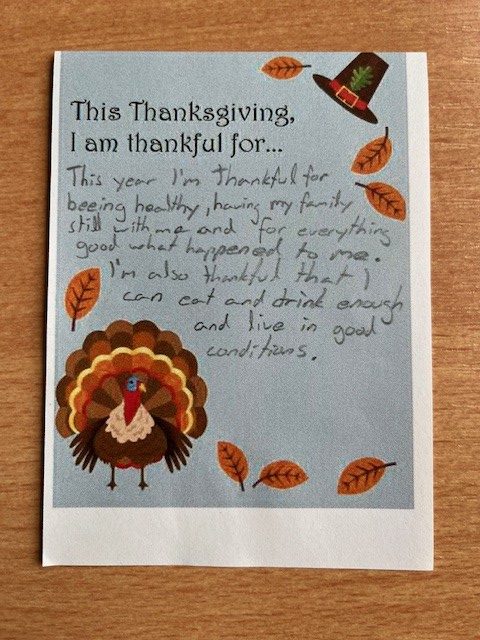 This Thanksgiving,
I am thankful for...
This year I'm thankful for
beeing healthy, having my family
still with me and for everything
good what happened to me.
I'm also thankful that I
can eat and drink enough
and live in good
conditions.